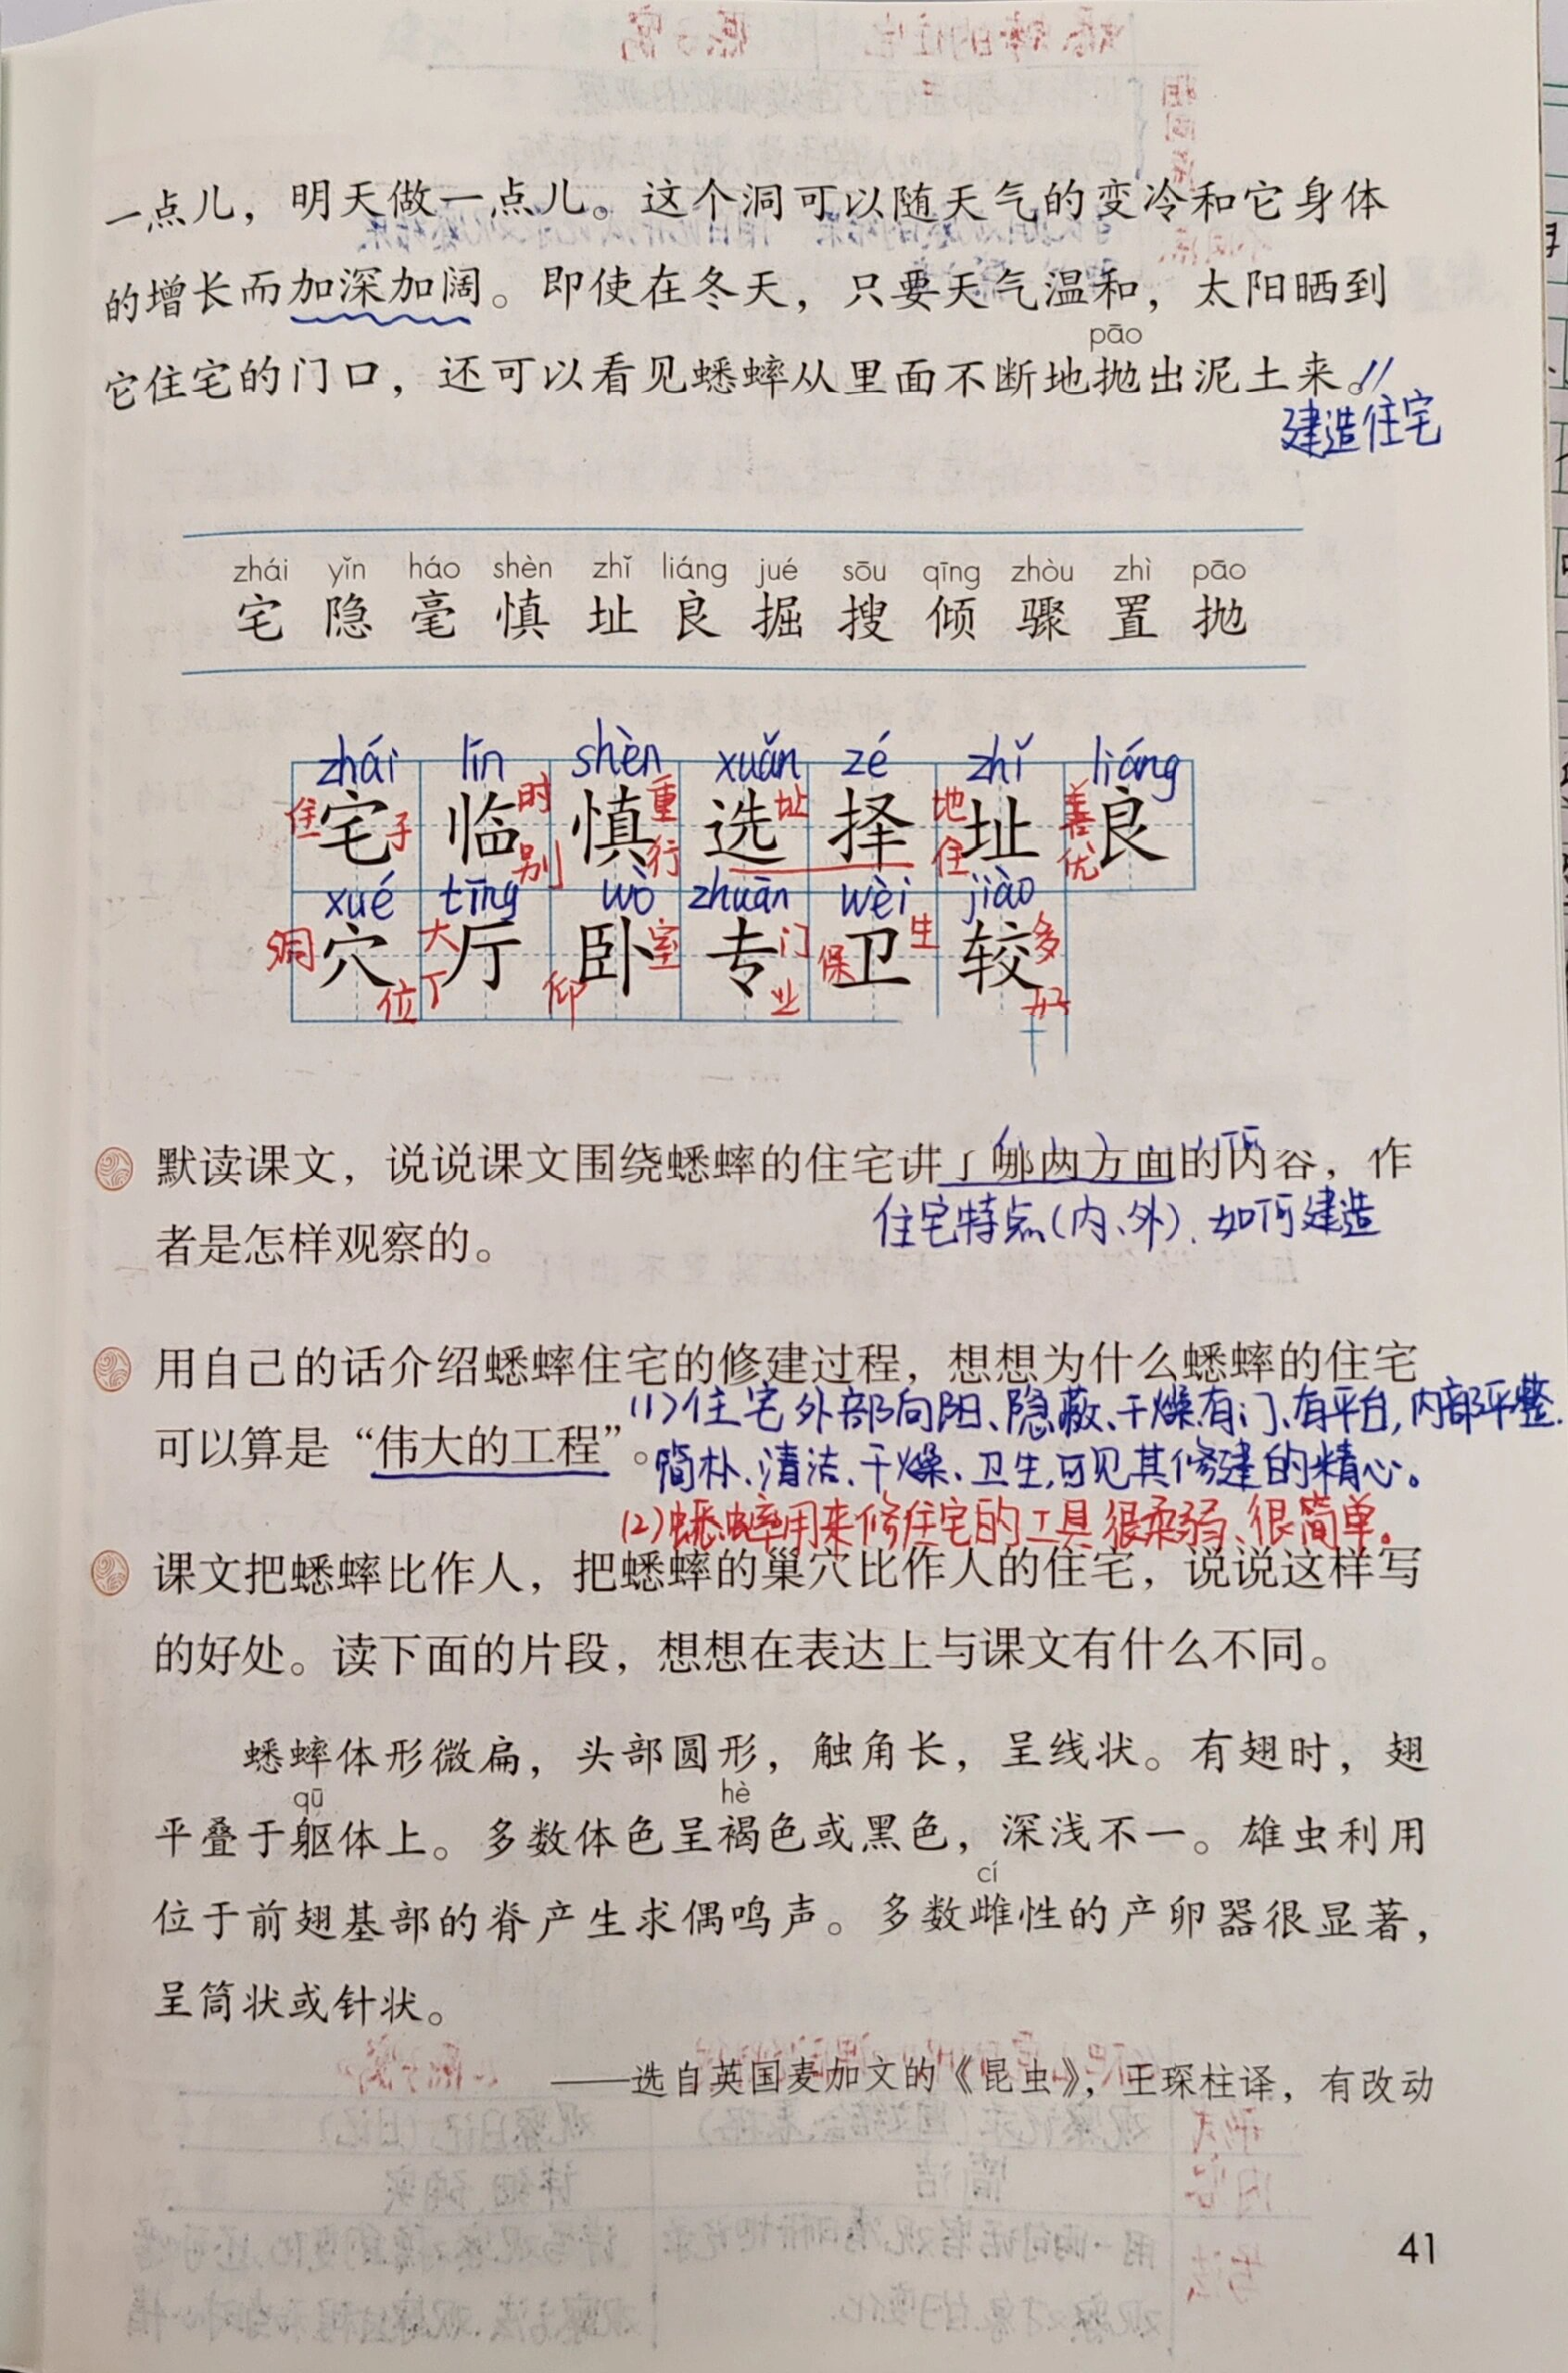 一点儿，明天做一点儿。这个洞可以随天气的变冷和它身体
的增长而加深加阔。即使在冬天，只要天气温和，太阳晒到
pāo
它住宅的门口，还可以看见蟋蟀从里面不断地抛出泥土来。//
建造住宅
zhái yǐn háo shèn zhǐ liáng jué sōu qīng zhòu zhì pāo
宅 隐 毫 慎 址 良 掘 搜 倾 骤 置 抛
zhái lín shèn xuǎn zé zhǐ liáng
住 宅 子 临 时 别 慎 重 行 选 址 择 地 住 址 善 优 良
xué tīng wò zhuān wèi jiào
洞 穴 位 大 丁 厅 仰 卧 室 专 门 业 保 卫 生 较 多 好
默读课文，说说课文围绕蟋蟀的住宅讲了哪两方面的内容，作
者是怎样观察的。
住宅特点(内、外)、如何建造
用自己的话介绍蟋蟀住宅的修建过程，想想为什么蟋蟀的住宅
可以算是“伟大的工程”。
(1)住宅外部向阳、隐蔽、干燥、有门、有平台，内部平整、
简朴、清洁、干燥、卫生，可见其修建的精心。
(2)蟋蟀用来修住宅的工具很柔弱、很简单。
课文把蟋蟀比作人，把蟋蟀的巢穴比作人的住宅，说说这样写
的好处。读下面的片段，想想在表达上与课文有什么不同。
蟋蟀体形微扁，头部圆形，触角长，呈线状。有翅时，翅
qū hè
平叠于躯体上。多数体色呈褐色或黑色，深浅不一。雄虫利用
cí
位于前翅基部的脊产生求偶鸣声。多数雌性的产卵器很显著，
呈筒状或针状。
——选自英国麦加文的《昆虫》，王琛柱译，有改动
41